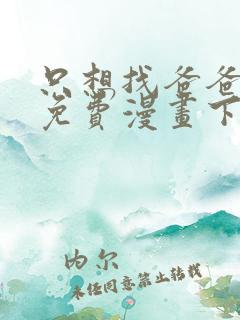 只想找爸爸
免费漫畫下
内尔
未经同意禁止转载